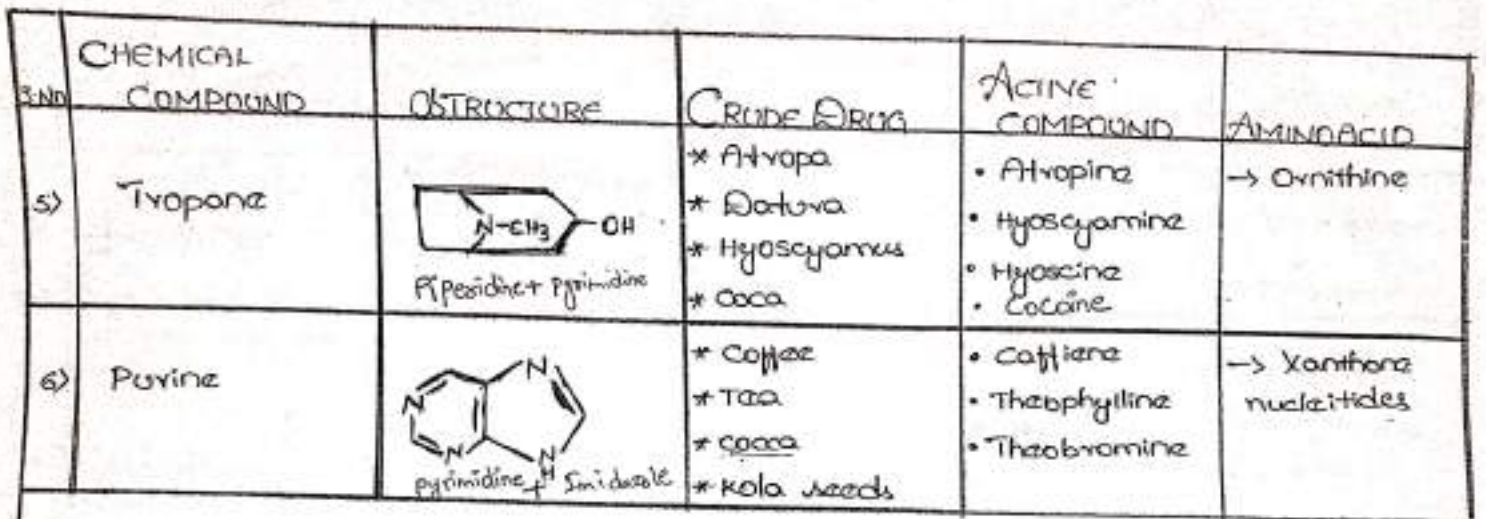 S.NO
CHEMICAL
COMPOUND
STRUCTURE
CRUDE DRUG
ACTIVE
COMPOUND
AMINOACID
5)
Tropane
N-CH3
OH
Piperidine + pyrimidine
* Atropa
* Datura
* Hyoscyamus
* Coca
• Atropine
• Hyoscyamine
• Hyoscine
• Cocaine
→ Ornithine
6)
Purine
N
N
N
N
H
pyrimidine + Imidazole
* Coffee
* Tea
* Cocca
* Kola seeds
• Caffiene
• Theophylline
• Theobromine
→ Xanthone
nucleitides